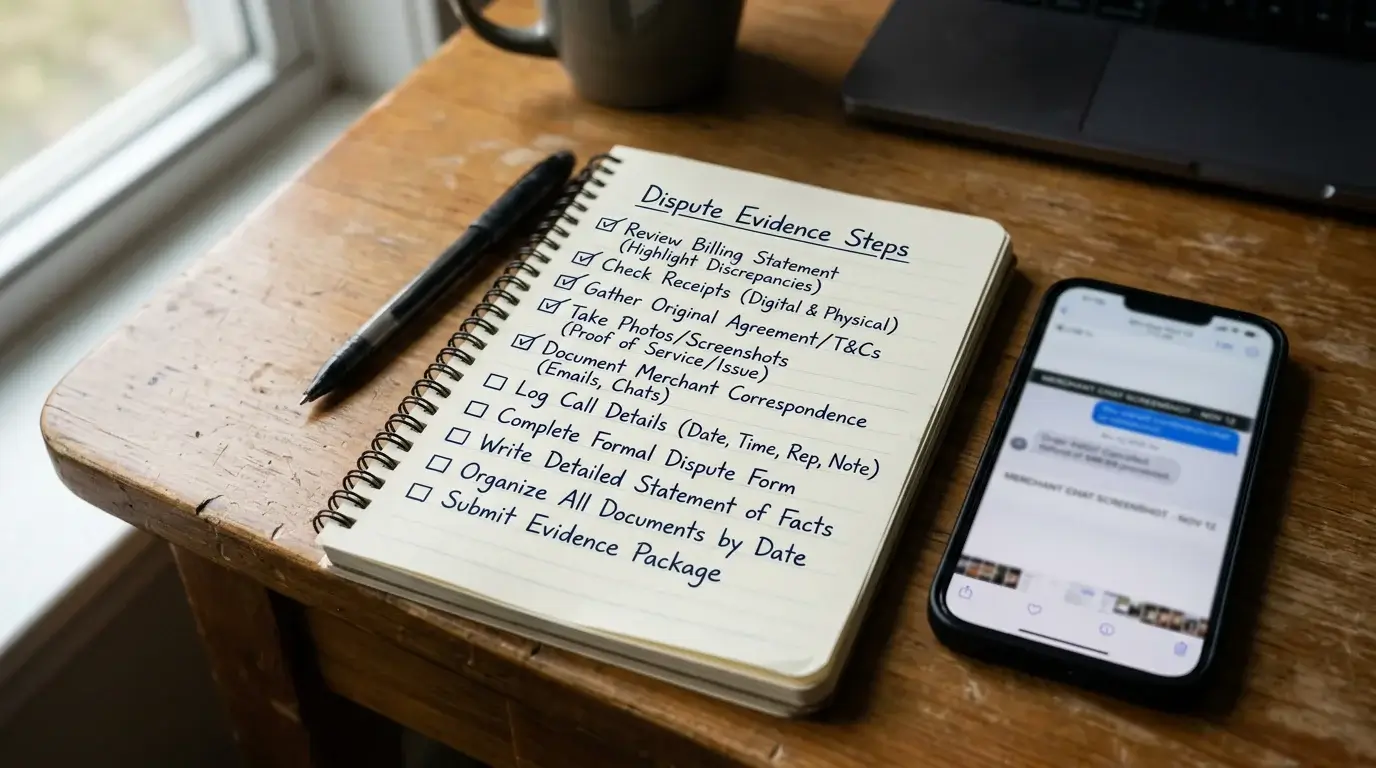 Dispute Evidence Steps
☑ Review Billing Statement
(Highlight Discrepancies)
☑ Check Receipts (Digital & Physical)
☑ Gather Original Agreement/T&Cs
☑ Take Photos/Screenshots
(Proof of Service/Issue)
☑ Document Merchant Correspondence
(Emails, Chats)
☐ Log Call Details (Date, Time, Rep, Note)
☐ Complete Formal Dispute Form
☐ Write Detailed Statement of Facts
☐ Organize All Documents by Date
☐ Submit Evidence Package
MERCHANT CHAT SCREENSHOT - NOV 12
MERCHANT CHAT SCREENSHOT - NOV 12